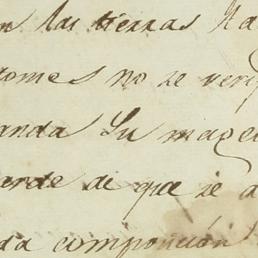 n las tierras Ra
omes no se veri
anda Su mage
ande de que se a
da composición